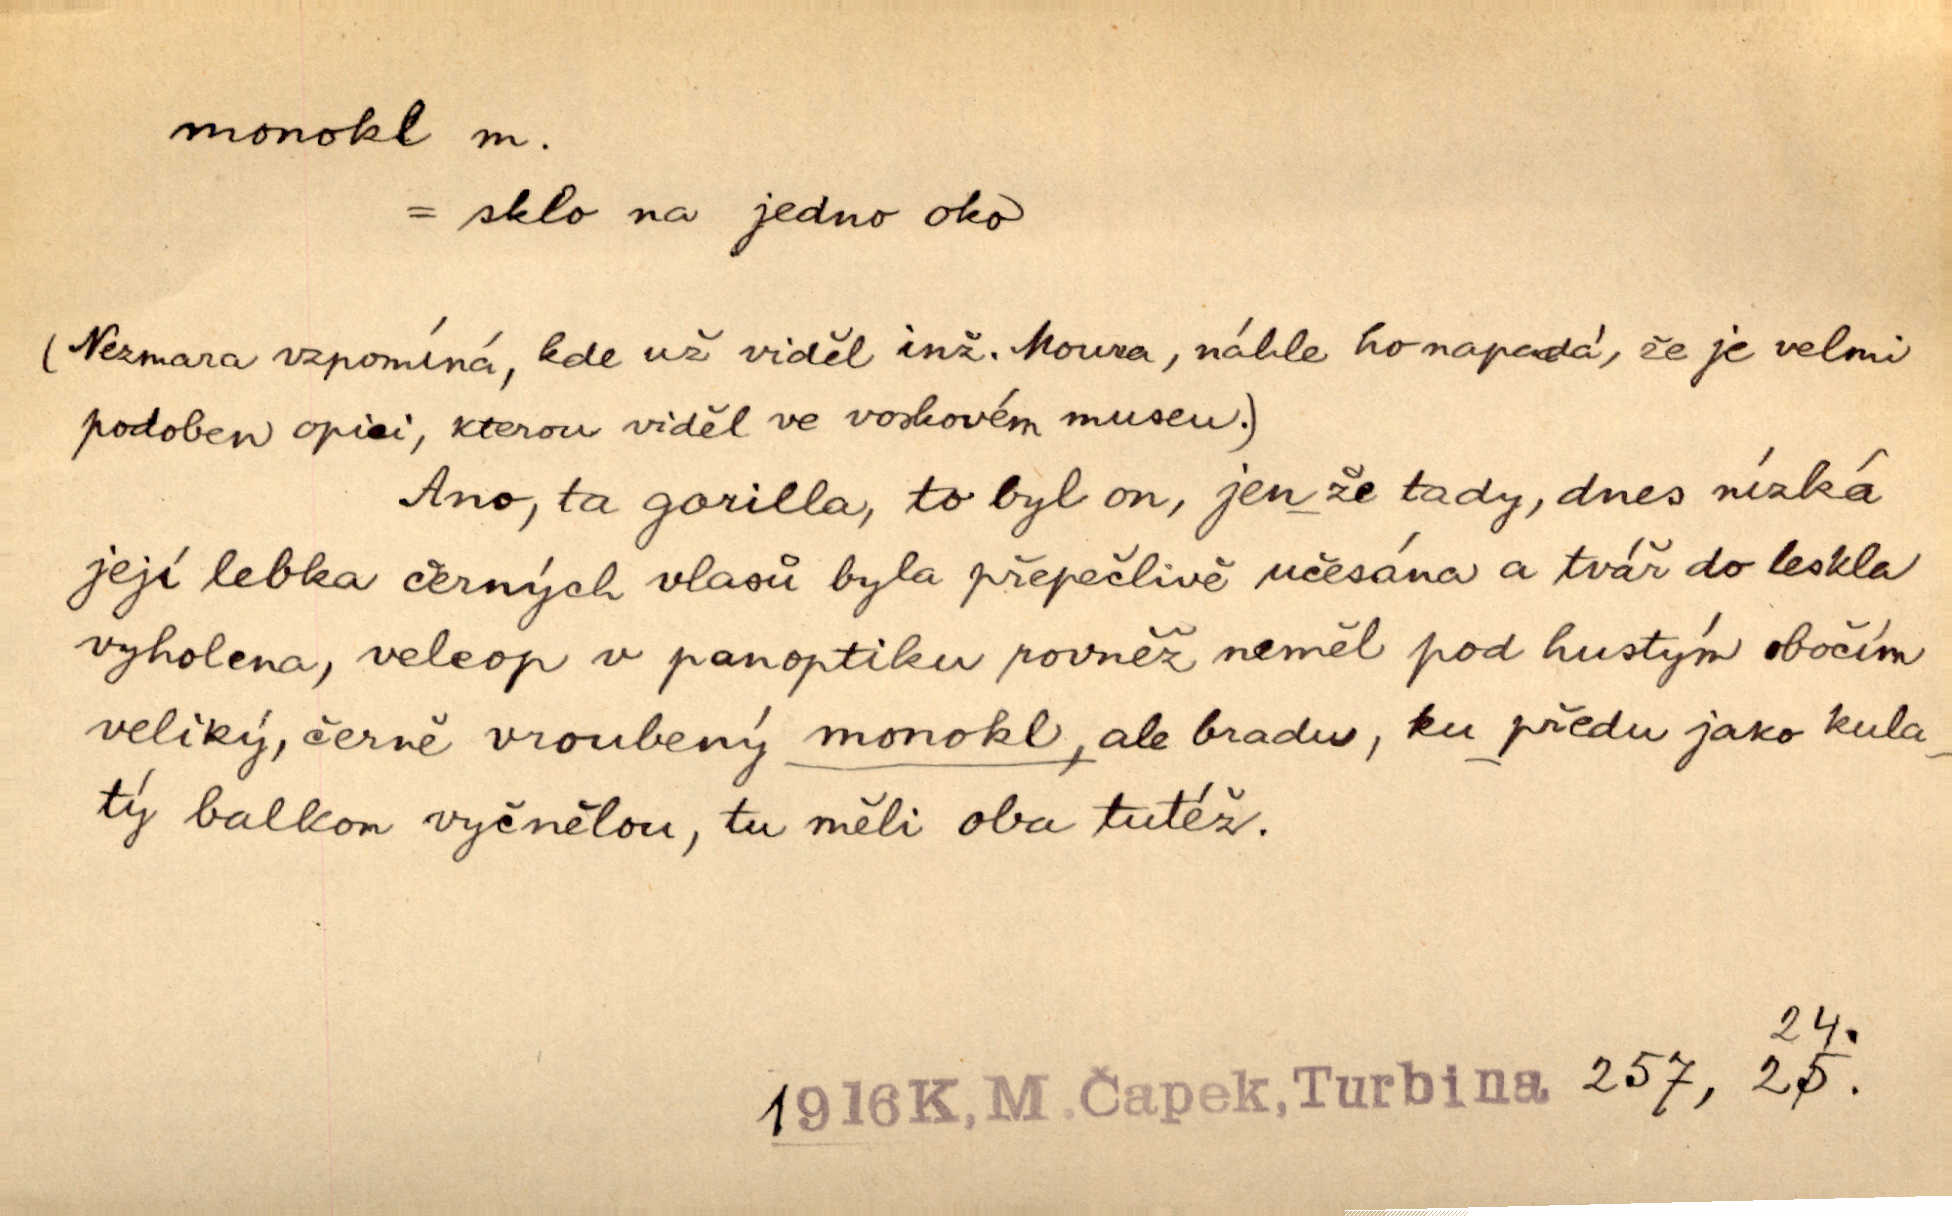 monokl m.
= sklo na jedno oko
(Nezmara vzpomíná, kde už viděl inž. Moura, náhle ho napadá, že je velmi
podoben opici, kterou viděl ve voskovém museu.)
Ano, ta gorilla, to byl on, jen že tady, dnes nízká
její lebka černých vlasů byla přepečlivě učesána a tvář do leskla
vyholena, veleop v panoptiku rovněž neměl pod hustým obočím
veliký, černě vroubený monokl, ale bradu, ku předu jako kula_
tý balkon vyčnělou, tu měli oba tutéž.
24.
1916 K, M. Čapek, Turbina 257, 25.